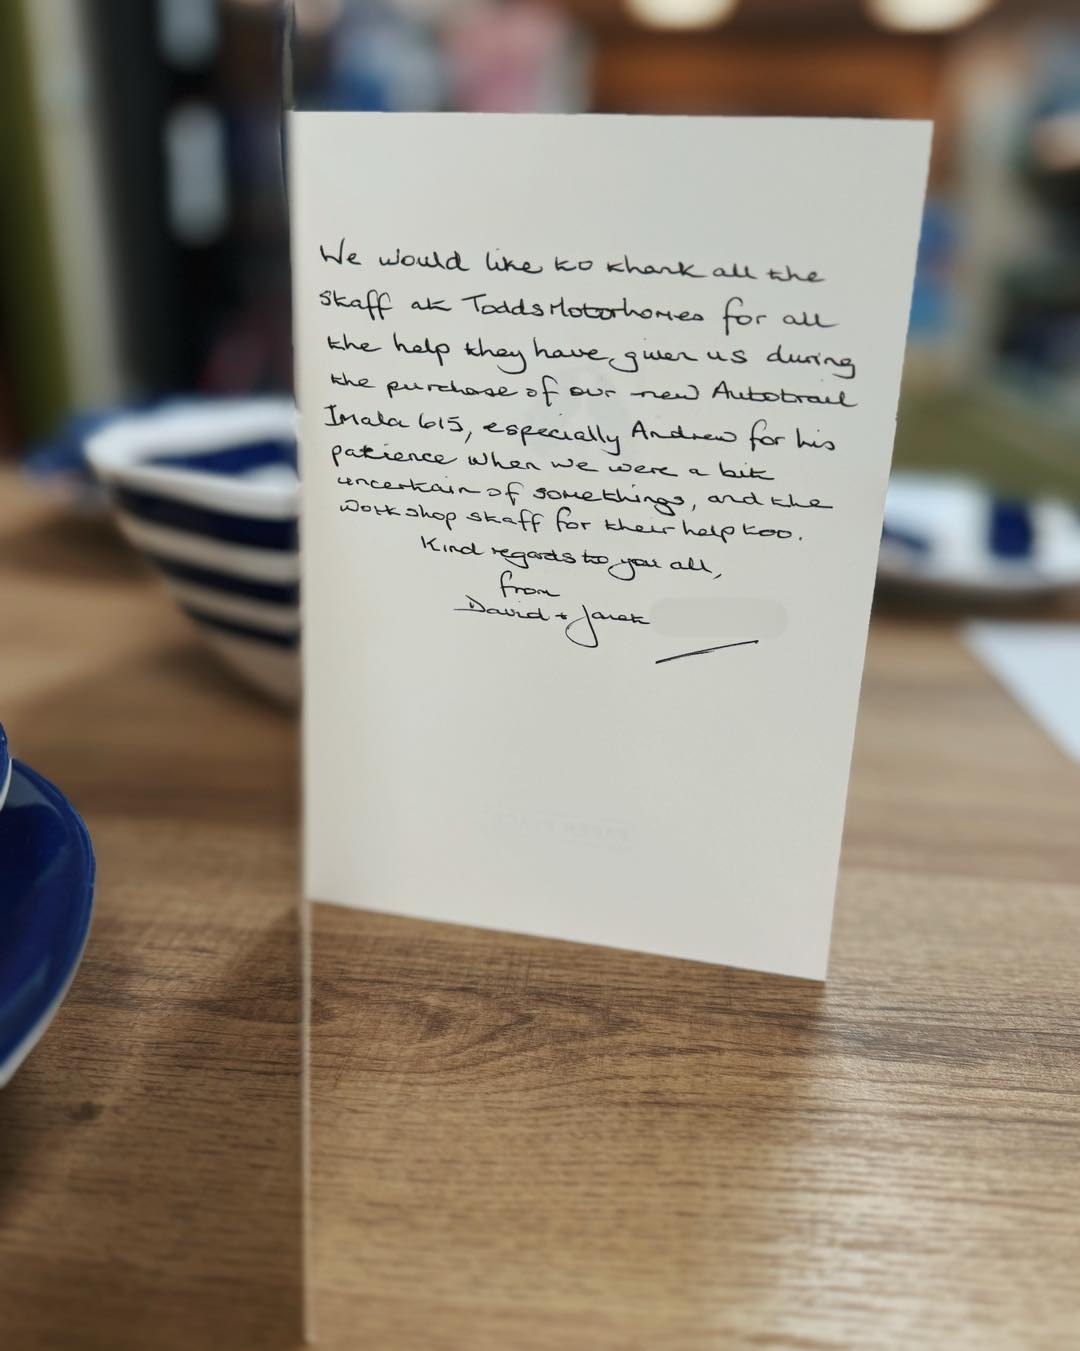 We would like to thank all the
staff at Todds Motorhomes for all
the help they have, given us during
the purchase of our new Autotrail
Imala 615, especially Andrew for his
patience when we were a bit
uncertain of some things, and the
workshop staff for their help too.
Kind regards to you all,
from
David + Janet